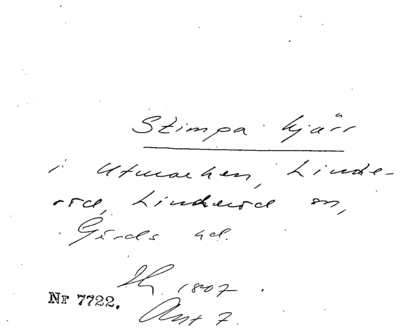 Stimpa kjärr
i Utmarken, Linde-
röd, Linderöd sn,
Gärds hd.
Sk. 1807.
Nr 7722.
Akt 7.